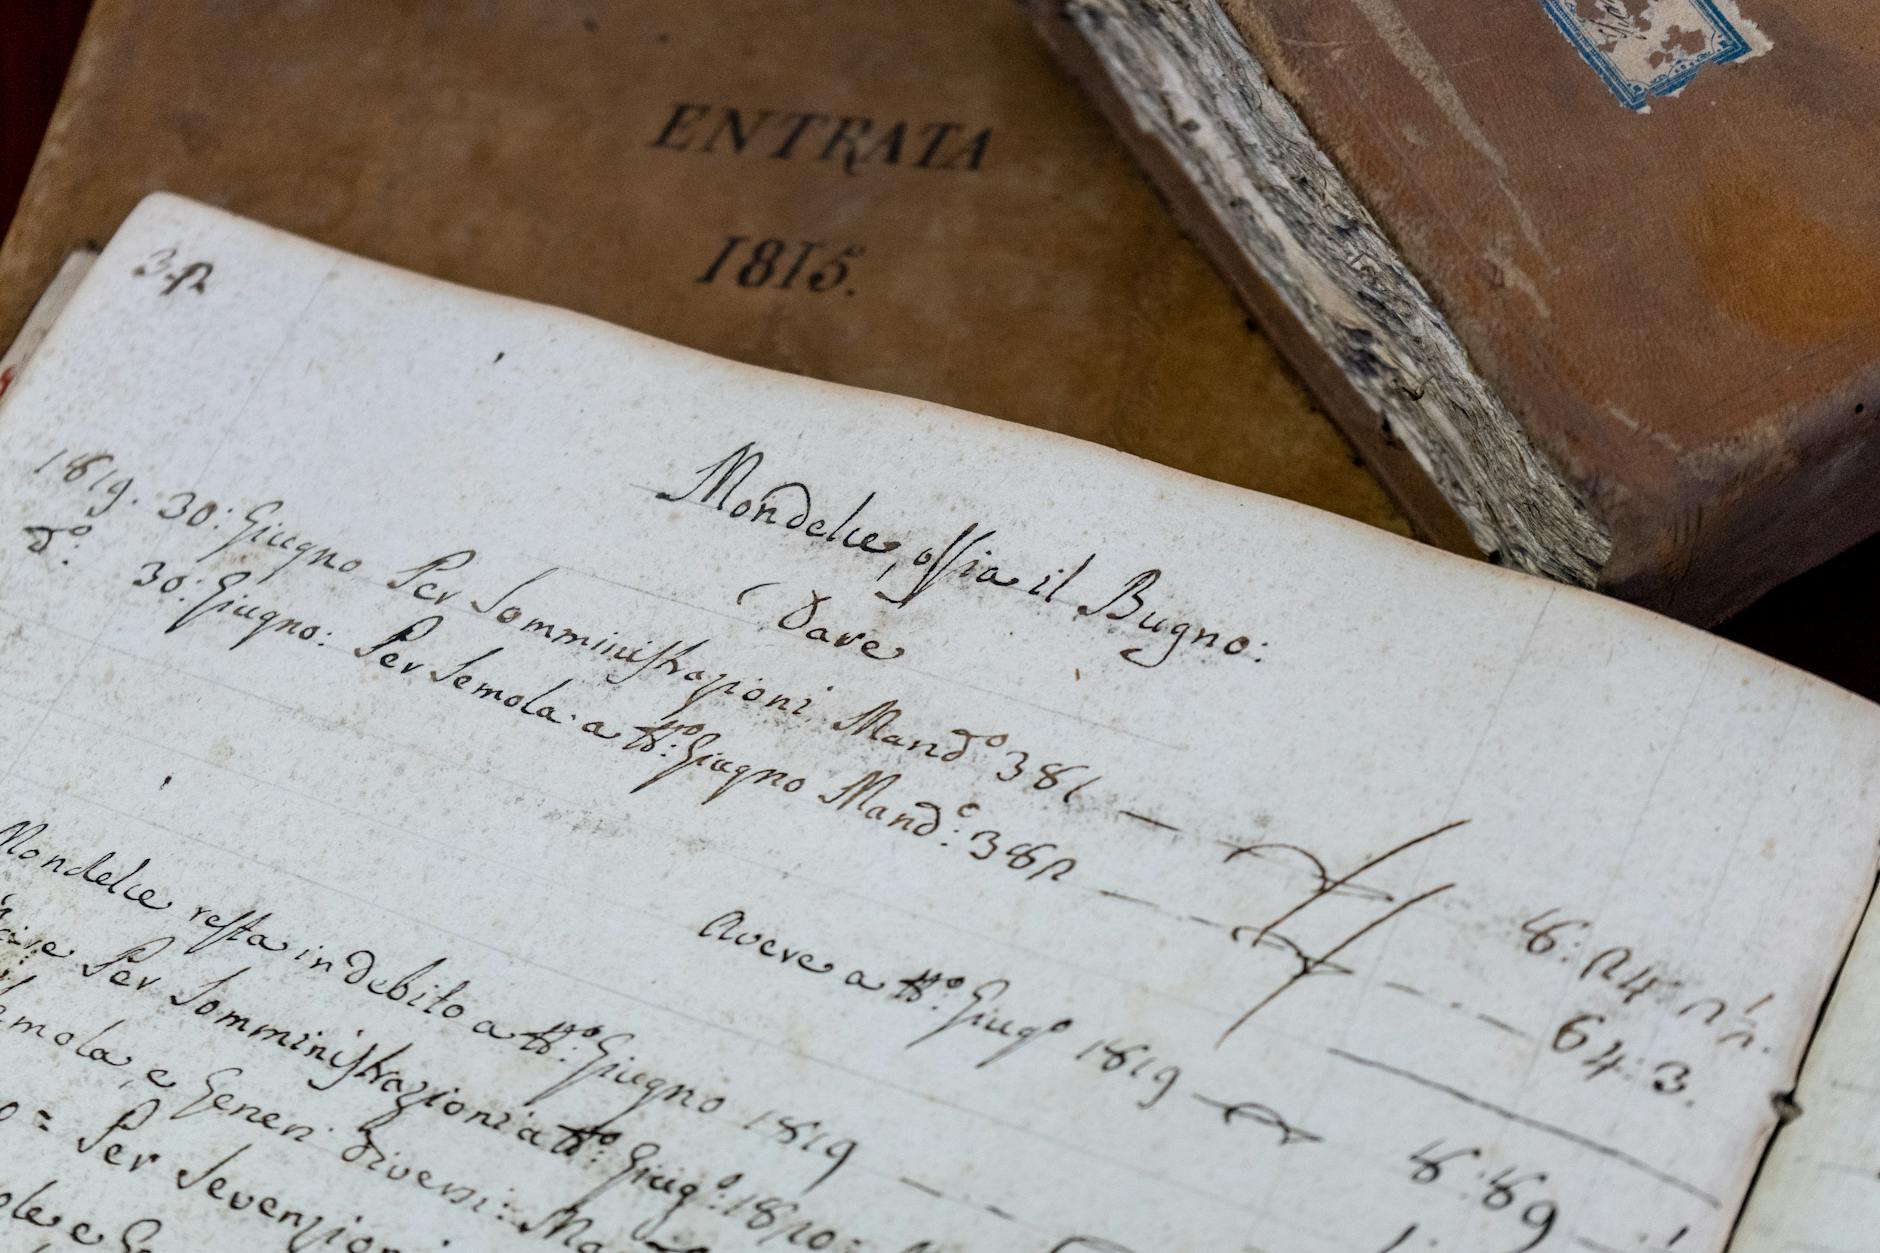 ENTRATA
1815.
32
Mondelce, ossia il Bugno:
Dare
1819. 30: Giugno Per Somministrazioni Mand.º 381
d.º: 30: Giugno: Per Semola a tt.º: Giugno Mand.º: 382
24
64: 3.
Avere a tt.º: Giug.º 1819
89
Mondelce resta in debito a tt.º: Giugno 1819
Per Somministrazioni a tt.º: Giug.º: 1820:
Semola, e Generi diversi:
= Per Sevenzioni
e